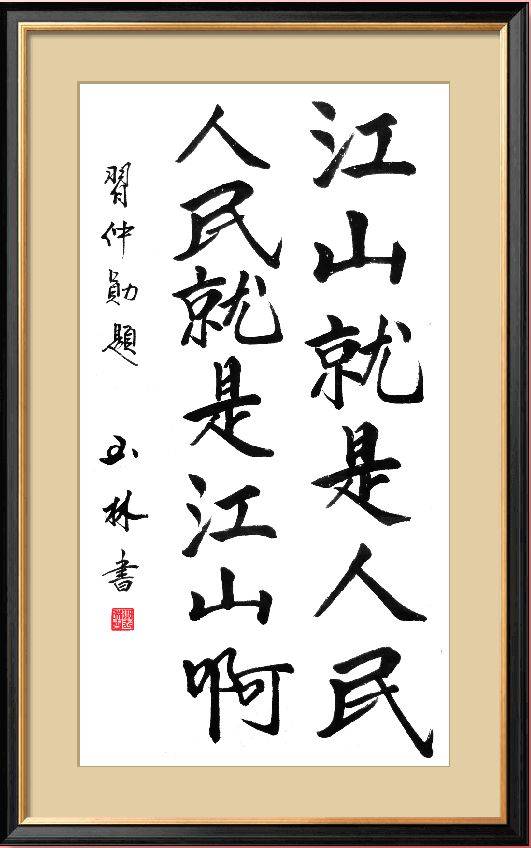 江山就是人民
人民就是江山啊
習仲勛題 玉林書